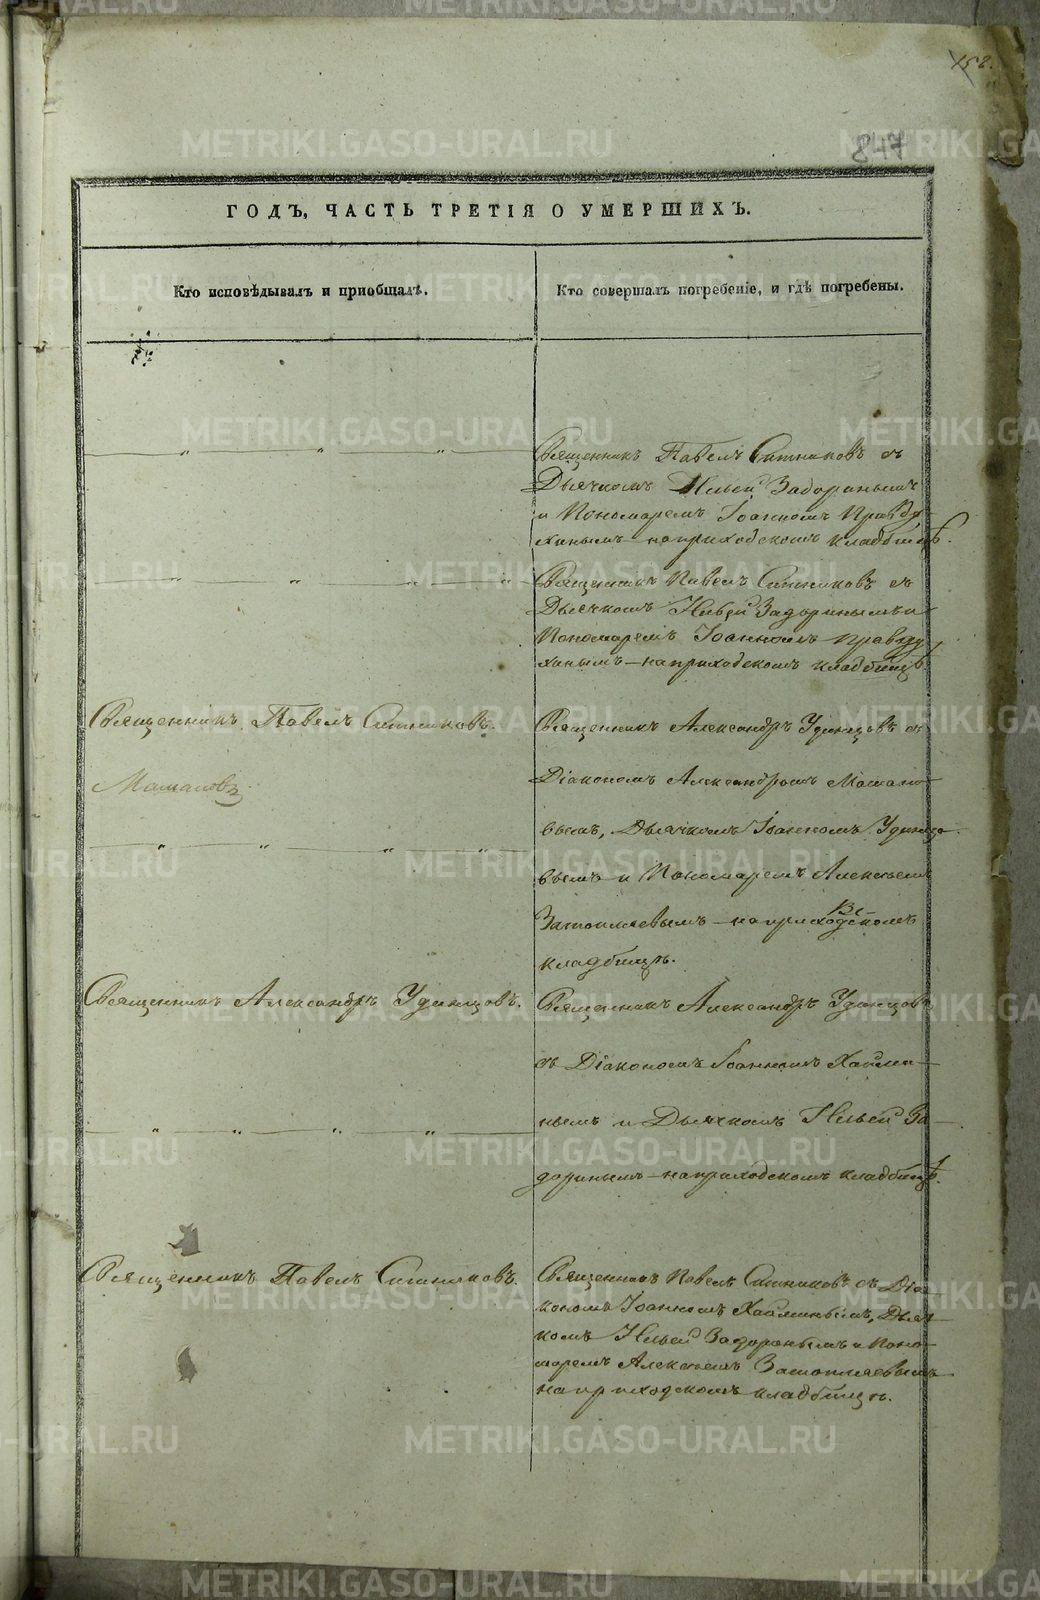 158.
847
ГОДЪ, ЧАСТЬ ТРЕТІЯ О УМЕРШИХЪ.
Кто исповѣдывалъ и пріобщалъ.
Кто совершалъ погребеніе, и гдѣ погребены.
Священникъ Павелъ Ситниковъ съ
Дьячкомъ Ильей Задоринымъ
и Пономаремъ Іоанномъ Правду-
хинымъ – на приходскомъ кладбищѣ.
Священникъ Павелъ Ситниковъ съ
Дьячкомъ Ильей Задоринымъ и
Пономаремъ Іоанномъ Правду
хинымъ – на приходскомъ кладбищѣ.
Священникъ Павелъ Ситниковъ.
Священникъ Александръ Удинцовъ съ
Діакономъ Александромъ Мамано-
Мамановъ
вымъ, Дьячкомъ Іоанномъ Удинцо-
вымъ и Пономаремъ Алексѣемъ
на приходскомъ
кладбищѣ.
Священникъ Александръ Удинцовъ.
Священникъ Александръ Удинцовъ
съ Діакономъ Іоанномъ
нымъ и Дьячкомъ Ильей За-
доринымъ – на приходскомъ кладбищѣ.
Священникъ Павелъ Ситниковъ.
Священникъ Павелъ Ситниковъ съ Діа-
кономъ Іоанномъ Дьяч-
комъ Ильей Задоринымъ и Поно-
маремъ Алексѣемъ
на приходскомъ кладбищѣ.
METRIKI.GASO-URAL.RU